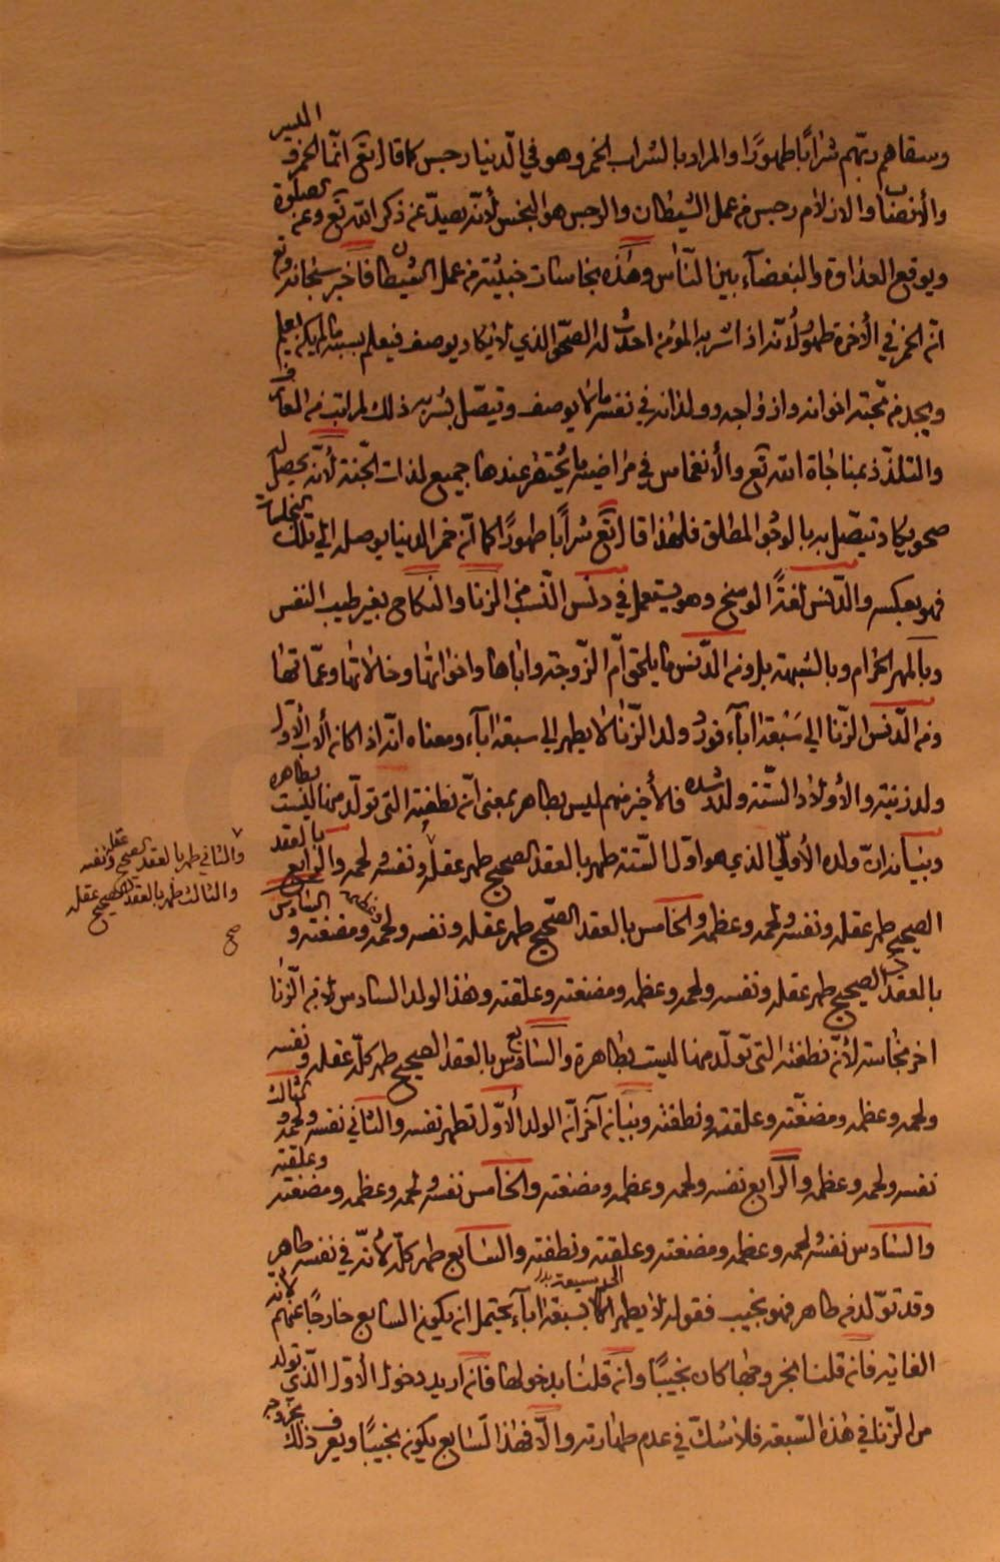 وسقاهم ربّهم شرابًا طهورًا والمراد بالشراب الخمر وهو في الدنيا رجس كما قال تع انّما الخمر و الميسر
والأنصاب والازلام رجس من عمل الشيطان والرجس هو النجس لأنّه يصدّ عن ذكر اللّه تع وعن الصلوة
ويوقع العداوة والبغضآء بين النّاس وهذه نجاسات خبيثة من عمل الشيطان فاخبر سبحانه وتع
انّ الخمر في الأخرة طهور لأنّه اذا شربه المؤمن احدث له الصّحو الذي لا يكاد يوصف فيعلم بسببه ما لم يكن يعلم
ويجد من محبّته اخوانه وازواجه وولدانه في نفسه ما لا يوصف ويتصّل بشربه ذلك لمراتب من المعارف
والتلذّذ بمناجاة اللّه تع والأنغماس في مراضيه ما يحتقر عندها جميع لذات الجّنة لأنّه يحصل له
صحو يكاد يتصّل به بالوجود المطلق فلهذا قال تع شرابًا طهورًا كما انّ خمر الدنيا يوصله الي تلك النجاسات
فهو بعكسه والدّنس لغةً الوسخ وهو يستعمل في دنس النّسب من الزنا والنكاح بغير طيب النفس
وبالمهر الحرام وبالشبهة بل ومن الدّنس ما يلحق امّ الزّوجة واباها واخواتها وخالاتها وعمّاتها
ومن الدّنس الزّنا الي سَبْعة اباآء فورد ولد الزّنا لا يطهر الي سبعة اباآء ومعناه انّه اذا كان الأب الأوّل
ولد زنية والأولاد السّتة ولد رشده فالأخير منهم ليس بطاهر بمعني انّ نطفته التي تولّد منها ليست بطاهرة
وبيانه انّ ولده الأوّلي الذي هو اوّل السّتة طهر بالعقد الصحيح طهر عقله ونفسه ولحمه والرابع بالعقد
الصحيح طهر عقله ونفسه ولحمه وعظمه والخامس بالعقد الصّحيح طهر عقله ونفسه ولحمه وعظمه ومضغته و السّادس
بالعقد الصحيح طهر عقله ونفسه ولحمه وعظمه ومضغته وعلقته وهذا الولد السّادس لابن الزّنا
اخر نجاسته لأنّ نطفته التي تولّد منها ليست بطاهرة والسّابع بالعقد الصحيح طهر كلّه عقله و نفسه
ولحمه وعظمه ومضغته وعلقته ونطفته وبيانٍ آخر انّ الولد الأوّل تطهر نفسه والثّاني نفسه ولحمه و الثالث
نفسه ولحمه وعظمه والرّابع نفسه ولحمه وعظمه ومضغته والخامس نفسه ولحمه وعظمه ومضغته وعلقته
والسّادس نفسه ولحمه وعظمه ومضغته وعلقته ونطفته والسّابع طهر كلّه لأنّه في نفسه طاهر
وقد تولّد من طاهر فهو نجيب فقوله لا يطهر الي سبعة اباآء يحتمل ان يكون السّابع خارجًا عنهم لأنه
الغاية فان قلنا بخروجها كان نجيبًا وان قلنا بدخولها فان اريد دخول الأوّل الّذي تولد
من الزّنا في هذه السّبعة فلا شكّ في عدم طهارته والّا فهذا السّابع يكون نجيبًا ويعرف ذلك بخروجه
والثاني طهر بالعقد الصحيح عقله ونفسه
والثالث طهر بالعقد الصحيح عقله
صح